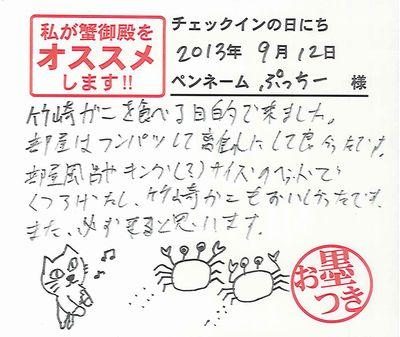 私が蟹御殿を
オススメ
します!!
チェックインの日にち
2013年 9月 12日
ペンネーム ぷっちー 様
竹崎がにを食べる目的で来ました。
部屋はフンパツして離れにして良かったです。
部屋風呂やキング(して?)サイズのベットで
くつろげたし、竹崎かにもおいしかったです。
また、必ず来ると思います。
お墨つき